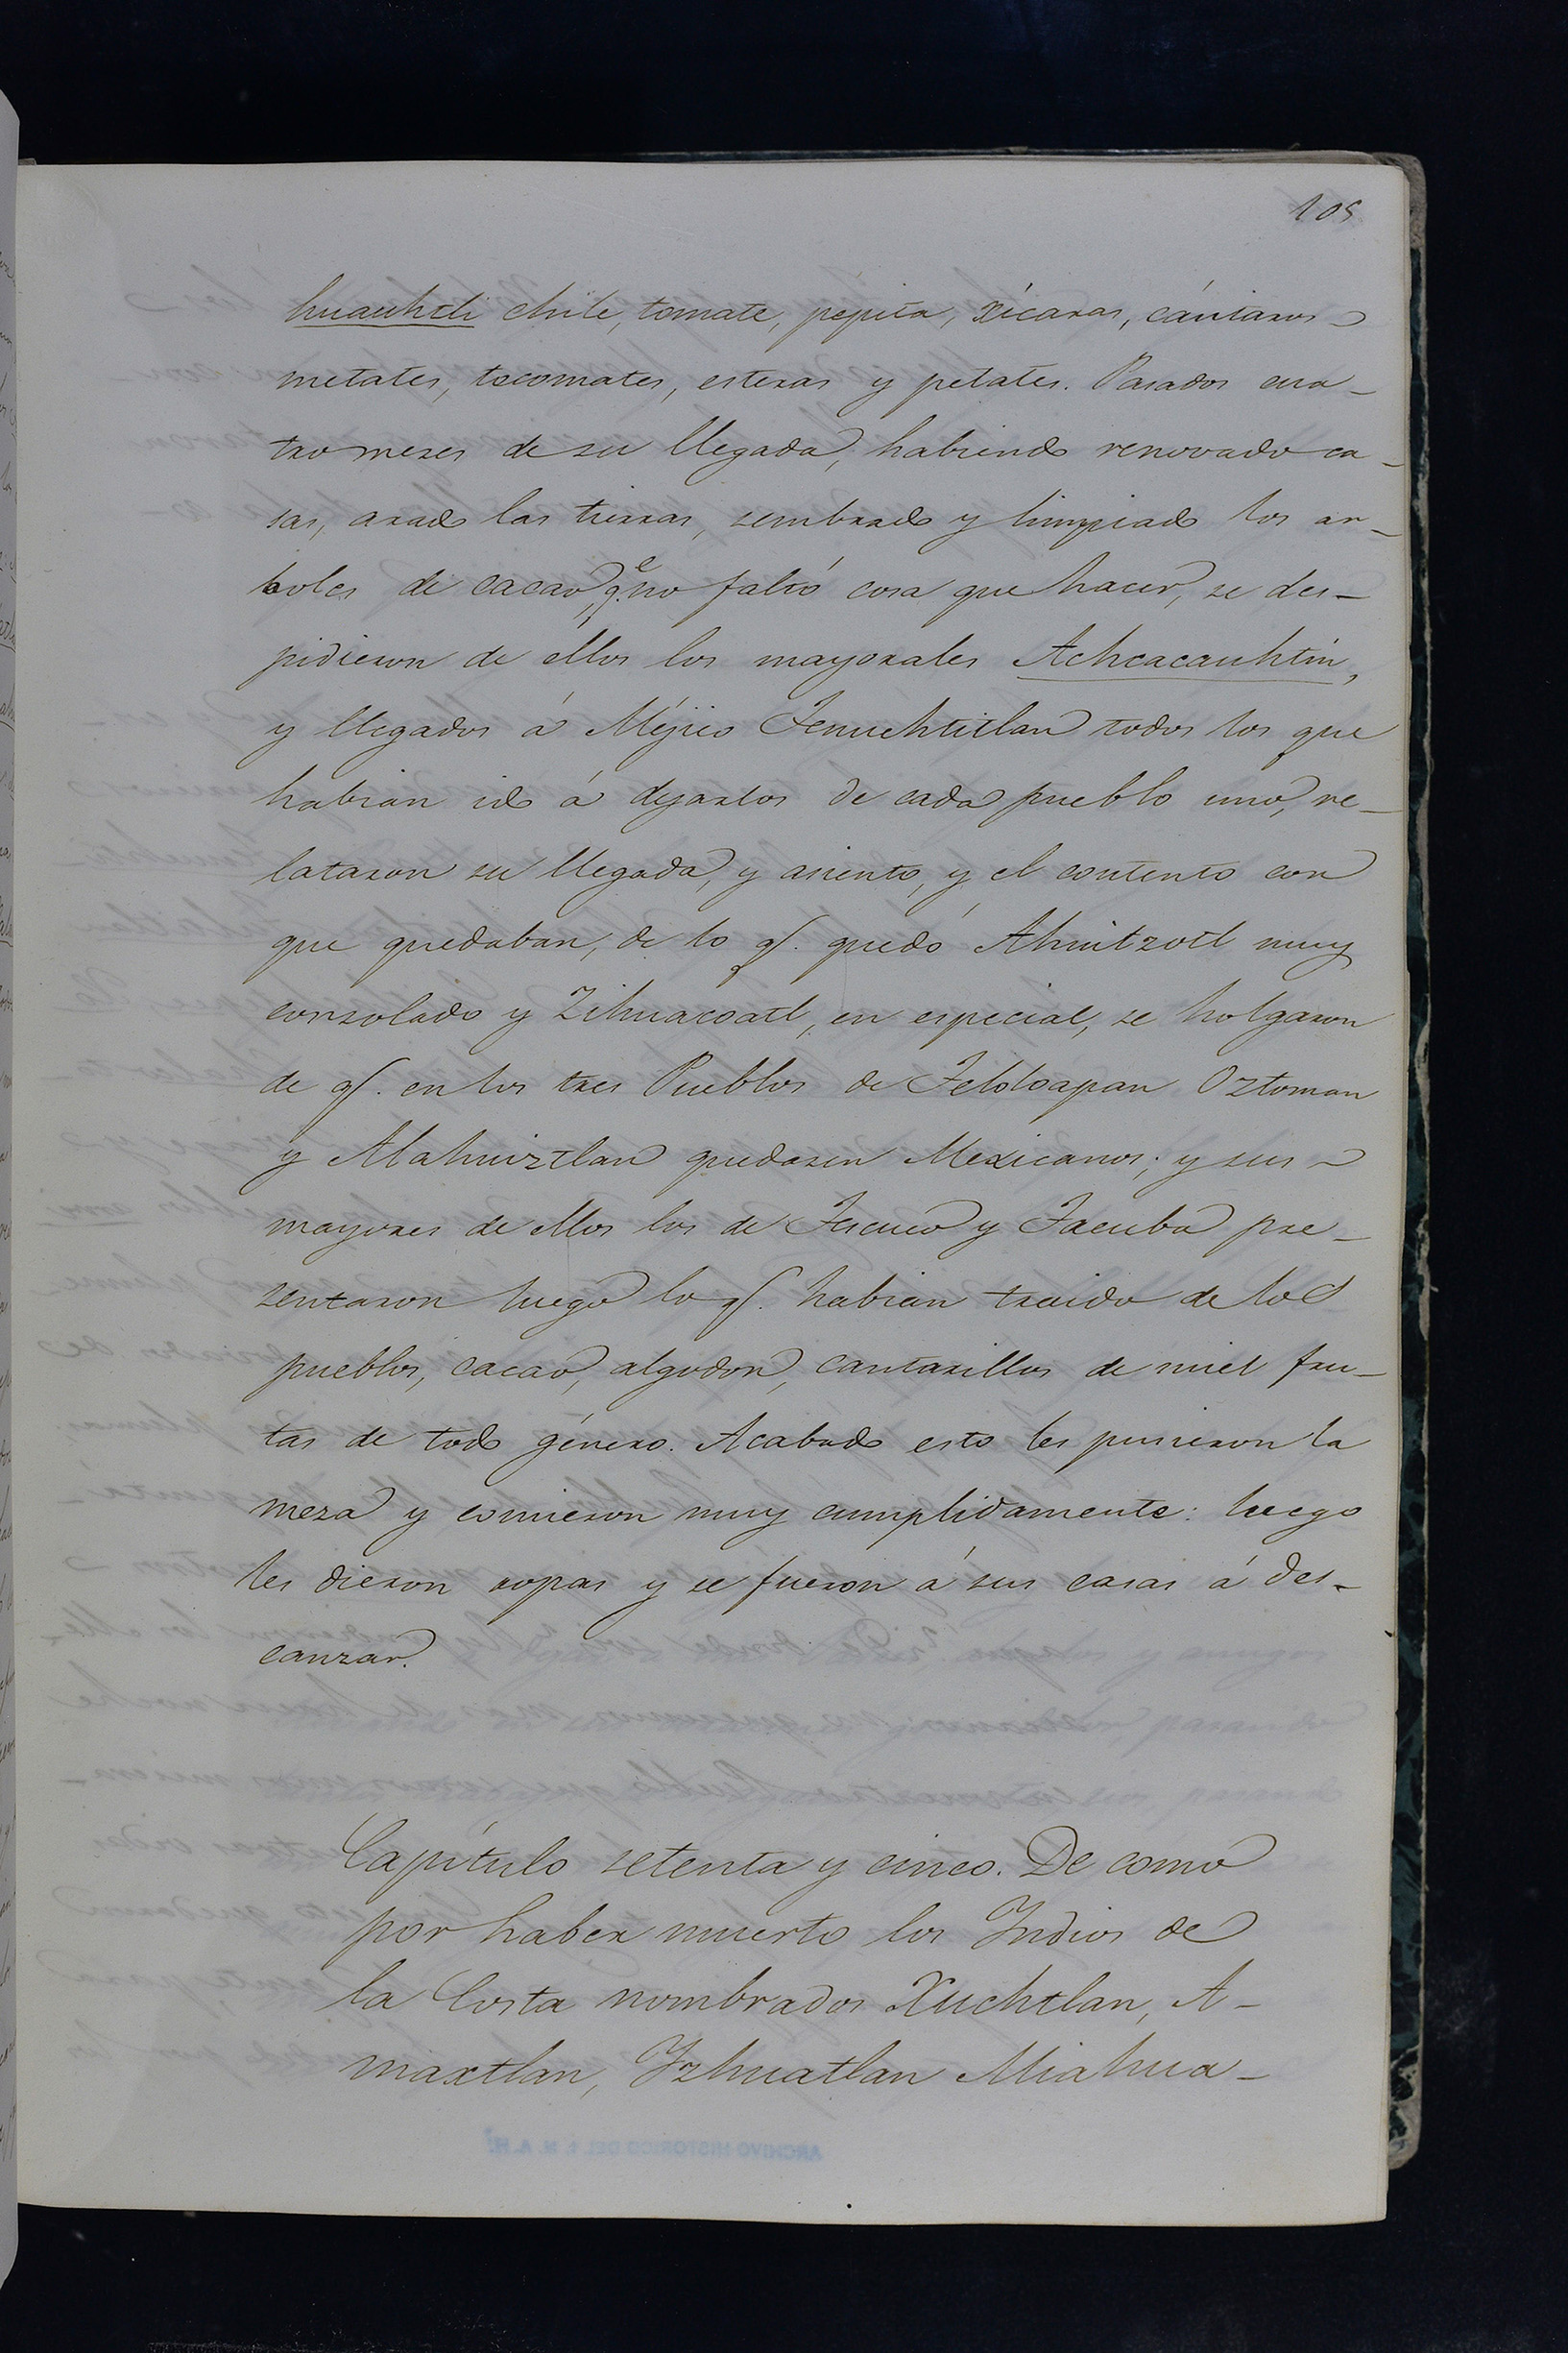 105
huauhtli chile, tomate, pepita, xícaras, cántaros
metates, tecomates, esteras y petates. Pasados cua-
tro meses de su llegada, habiendo renovado ca-
sas, arado las tierras, sembrado y limpiado los ar-
boles de cacao, q.e no faltó cosa que hacer, se des-
pidieron de ellos los mayorales Achcacauhtin,
y llegados á Méjico Tenuchtitlan todos los que
habian ido á dejarlos de cada pueblo uno, re-
lataron su llegada, y asiento, y el contento con
que quedaban, de lo q. quedó Ahuitzotl muy
consolado y Zihuacoatl, en especial, se holgaron
de q. en los tres Pueblos de Teloloapan Oztoman
y Alahuiztlan quedasen Mexicanos; y sus
mayores de ellos los de Tescuco y Tacuba pre-
zentaron luego lo q. habian traido de los
pueblos, cacao, algodon, cantarillos de miel fru-
tas de todo género. Acabado esto les pusieron la
meza y comieron muy cumplidamente: luego
les dieron ropas y se fueron á sus casas á des-
canzar.
Capítulo setenta y cinco. De como
por haber muerto los Indios de
la Costa nombrados Xuchtlan, A-
maxtlan, Yzhuatlan Miahua-
ARCHIVO HISTORICO DEL I. N. A. H.